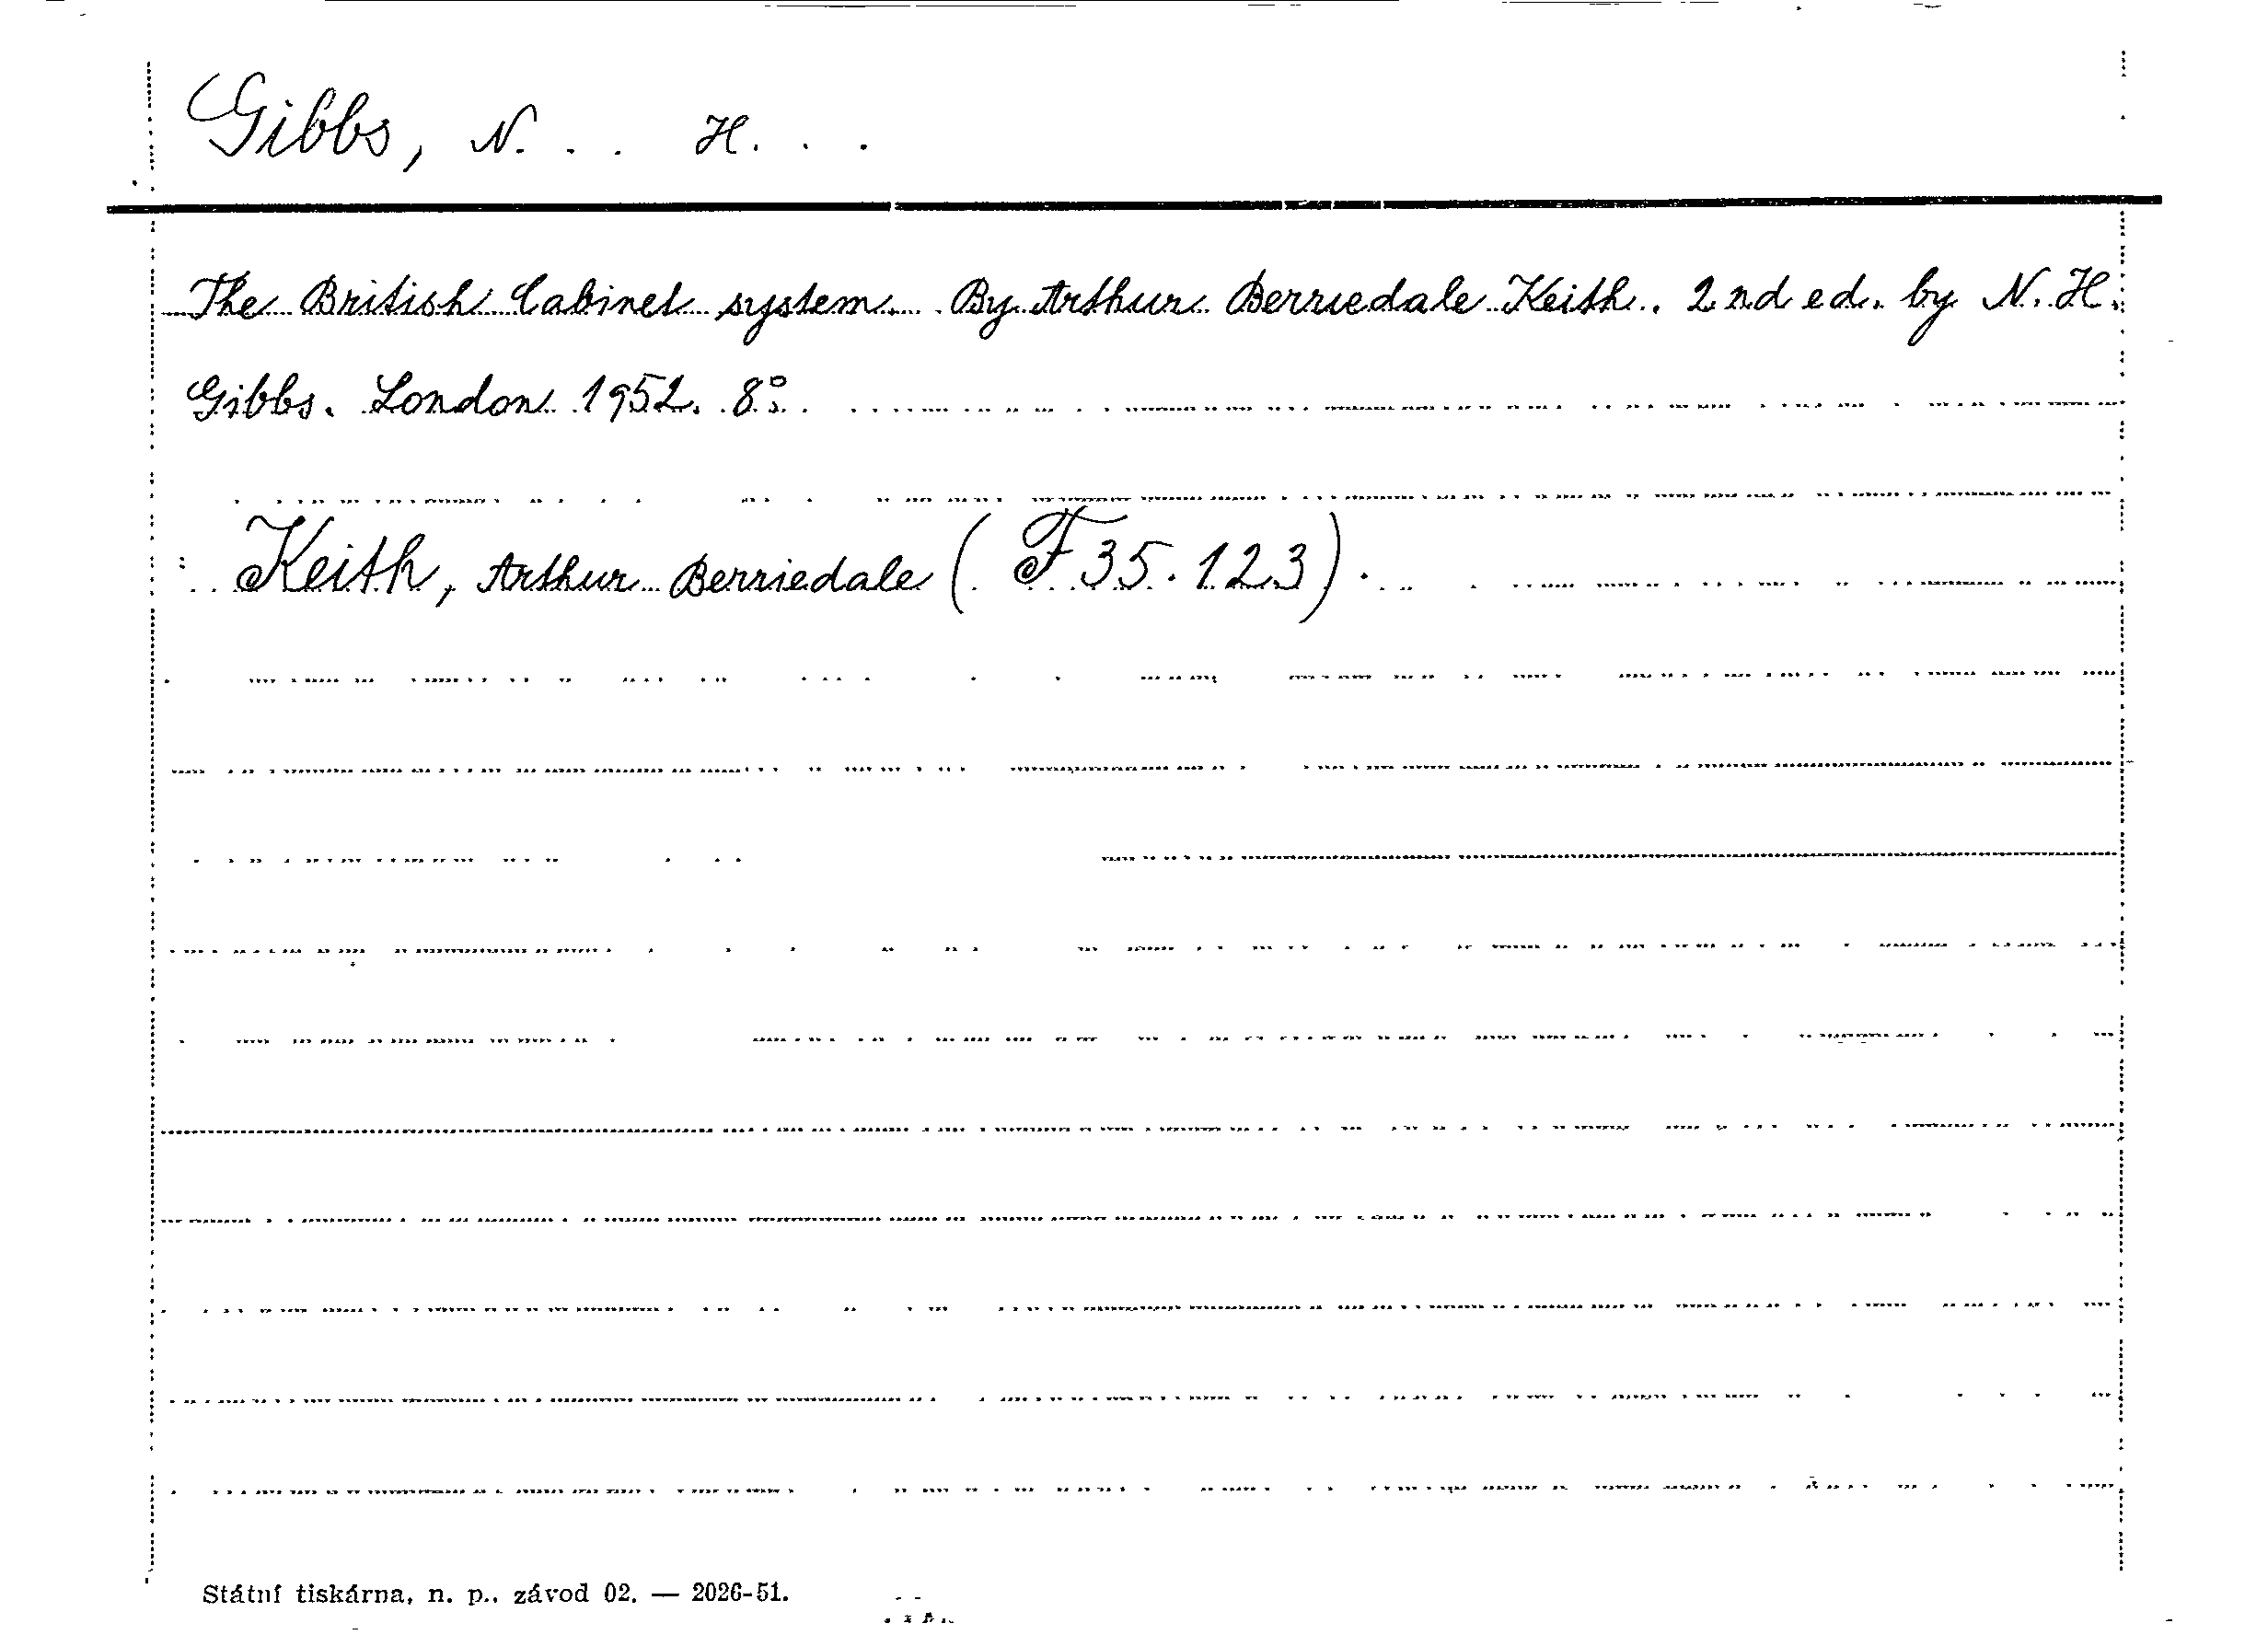 Gibbs, N. . . H. . .
The British Cabinet system. By Arthur Berriedale Keith. 2nd ed. by N. H.
Gibbs. London 1952. 8°.
Keith, Arthur Berriedale (F 35.123).
Státní tiskárna, n. p., závod 02. — 2026-51.